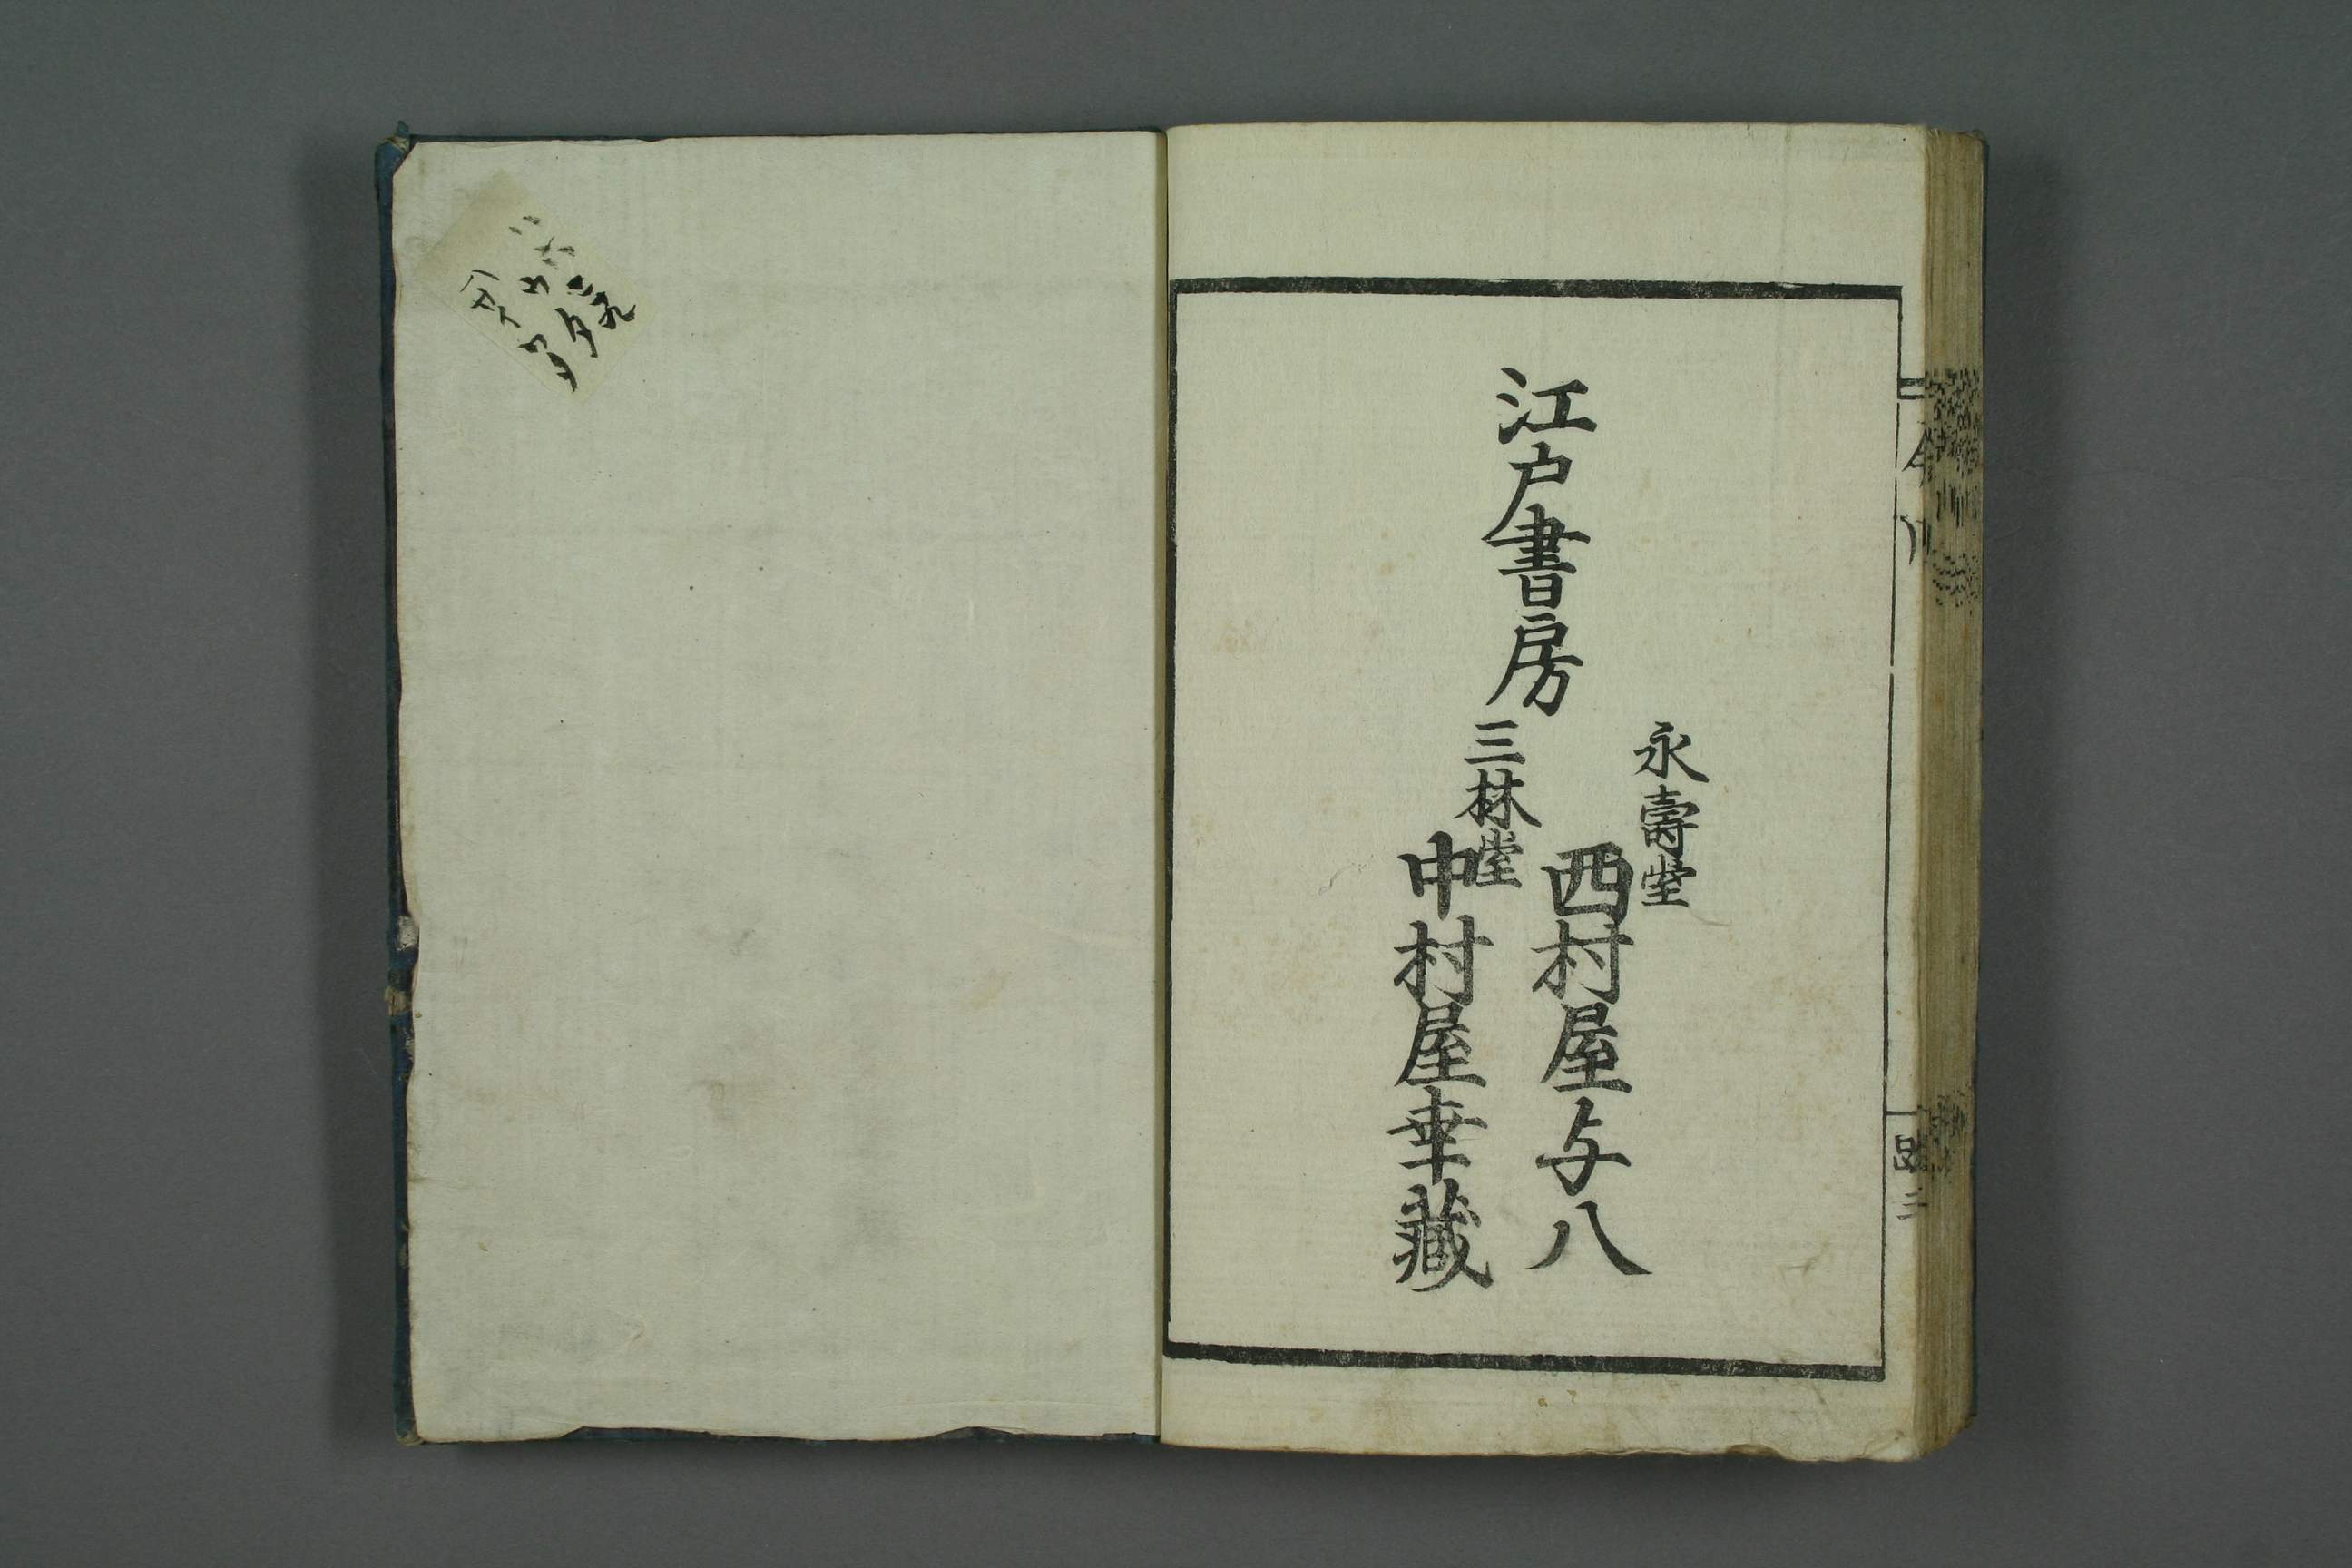 江戸書房
永壽堂
西村屋与八
三林堂
中村屋幸藏